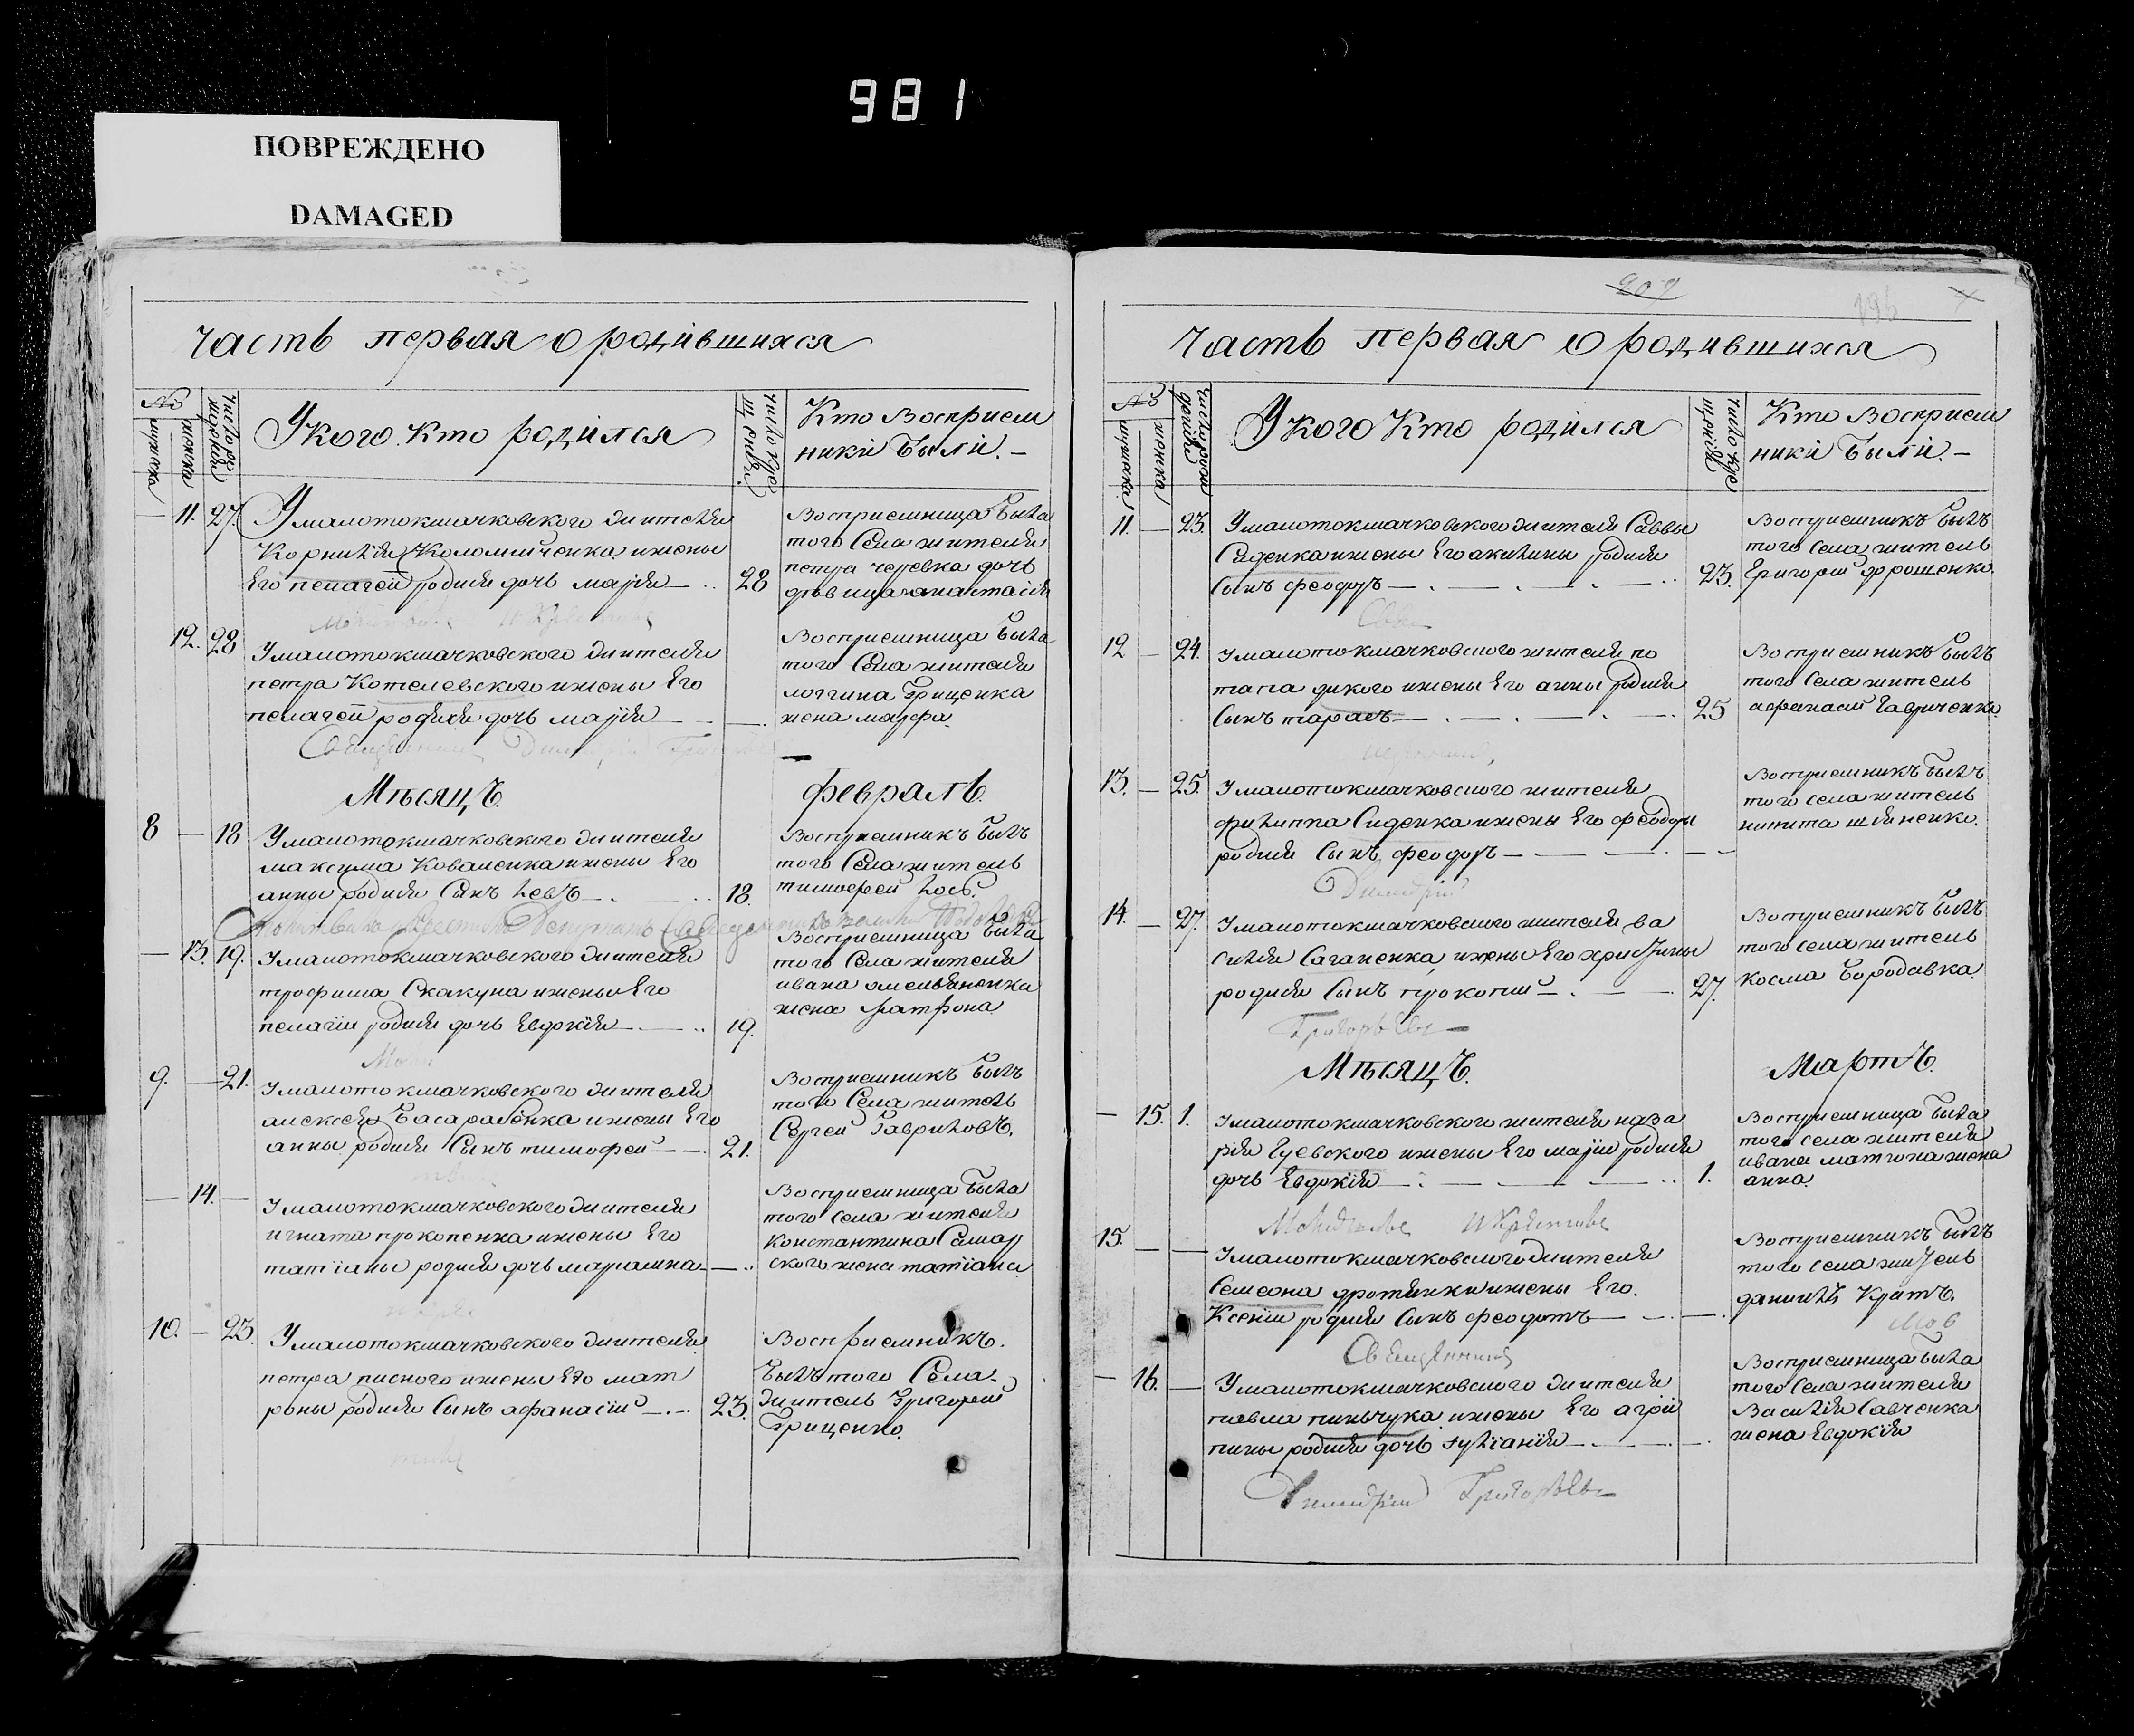 981
ПОВРЕЖДЕНО
DAMAGED
Часть первая о родившихся
№
мужеска
женска
Число рождения
У кого кто родился
Число крещения
Кто восприем
ники были.
11. 27.
У малотокмачковского жителя
Корнилия Коломийченка и жены
его пелагеи родися дочь мария
28
Восприемница была
того села жителя
петра черевка дочь
девица анастасия
Молитвовал и крестил
12. 28
У малотокмачковского жителя
петра Котелевского и жены его
пелагеи родися дочь мария
Восприемница была
того села жителя
логгина Гриценка
жена марфа
Священник Димитрий Григорьев
Мѣсяцъ
февраль.
8 18
У малотокмачковского жителя
максима Коваленка и жены его
анны родися сынъ левъ
18.
Восприемникъ былъ
того села житель
тимофей лось
13. 19.
У малотокмачковского жителя
трофима Скакуна и жены его
пелагии родися дочь евдокия
19.
Восприемница была
того села жителя
ивана омельяненка
жена матрона
9. 21.
У малотокмачковского жителя
алексея басарабенка и жены его
анны родися сынъ тимофей
21.
Восприемникъ былъ
того села житель
Сергей Гавриловъ.
14.
У малотокмачковского жителя
игната прокопенка и жены его
татианы родися дочь мариамна
Восприемница была
того села жителя
константина Самар
ского жена татиана
10. 23.
У малотокмачковского жителя
петра писного и жены его мат
роны родися сынъ афанасий
23.
Восприемникъ.
былъ того села
житель Григорий
Гриценко.
207
196
Часть первая о родившихся
№
мужеска
женска
Число рождения
У кого кто родился
Число крещения
Кто восприем
ники были.
11 23.
У малотокмачковского жителя Саввы
Сиденка и жены его акилины родися
сынъ феодоръ
23.
Восприемникъ былъ
того села житель
Григорий ярошенко.
12 24.
У малотокмачковского жителя по
тапа дикого и жены его анны родися
сынъ тарасъ
25
Восприемникъ былъ
того села житель
афанасий Гавриченко
13. 25.
У малотокмачковского жителя
филиппа Сиденка и жены его феодоры
родися сынъ феодоръ
Восприемникъ былъ
того села житель
никита
Димитрий
14. 27.
У малотокмачковского жителя ва
силия Саганенка и жены его христины
родися сынъ прокопий
27.
Восприемникъ былъ
того села житель
косма бородавка
Григорьевъ
Мѣсяцъ.
Мартъ.
15. 1.
У малотокмачковского жителя наза
рия Гуевского и жены его марии родися
дочь евдокия
1.
Восприемница была
того села жителя
ивана матюна жена
анна.
Молитвовал и крестил
15.
У малотокмачковского жителя
Семеона дротянки и жены его.
Ксении родися сынъ феодотъ
Восприемникъ былъ
того села житель
даниилъ Кратъ.
Священник
16.
У малотокмачковского жителя
павла пинчука и жены его агрип
пины родися дочь иулиания
Восприемница была
того села жителя
Василия Савченка
жена Евдокия
Димитрий Григорьевъ